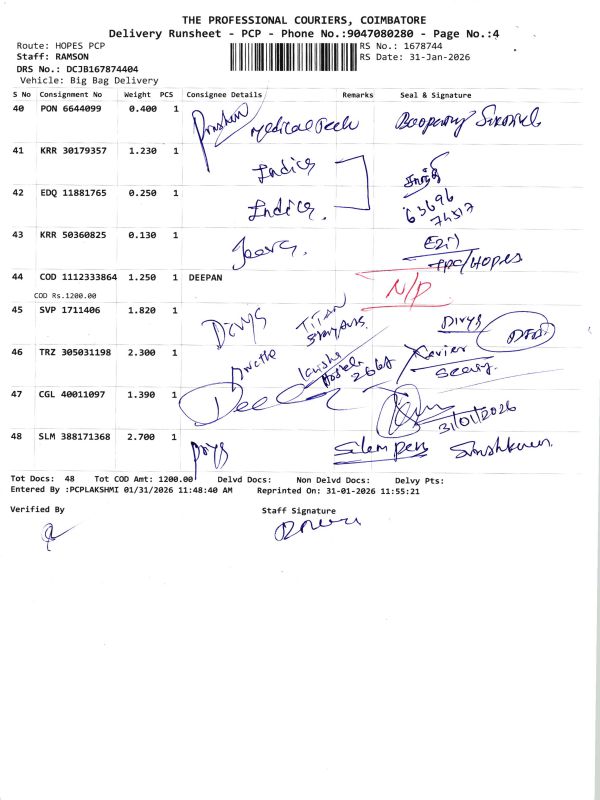 THE PROFESSIONAL COURIERS, COIMBATORE
Delivery Runsheet - PCP - Phone No.:9047080280 - Page No.:4
Route: HOPES PCP
RS No.: 1678744
Staff: RAMSON
RS Date: 31-Jan-2026
DRS No.: DCJB167874404
Vehicle: Big Bag Delivery
S No Consignment No Weight PCS Consignee Details Remarks Seal & Signature
40 PON 6644099 0.400 1 Medical Tech
41 KRR 30179357 1.230 1 Indica
42 EDQ 11881765 0.250 1 Indica.
63696
74517
43 KRR 50360825 0.130 1
TPC/HOPES
44 COD 1112333864 1.250 1 DEEPAN N/P
COD Rs.1200.00
45 SVP 1711406 1.820 1 Divys Titan Divys
46 TRZ 305031198 2.300 1 Xavier
47 CGL 40011097 1.390 1 31/01/2026
48 SLM 388171368 2.700 1
Tot Docs: 48 Tot COD Amt: 1200.00 Delvd Docs: Non Delvd Docs: Delvy Pts:
Entered By :PCPLAKSHMI 01/31/2026 11:48:40 AM Reprinted On: 31-01-2026 11:55:21
Verified By Staff Signature